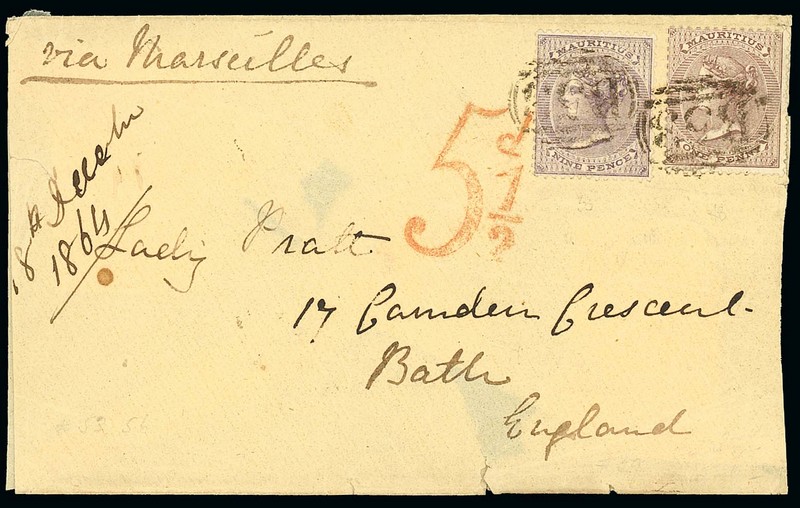 via Marseilles
MAURITIUS
NINE PENCE
MAURITIUS
ONE PENNY
5½
18th
1864
Lady Pratt
17 Camden Crescent
Bath
England